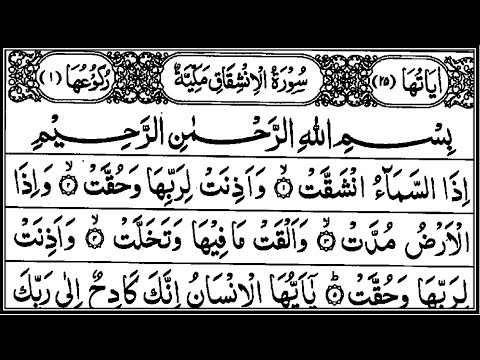 اٰیَاتُهَا (۲۵) سُوْرَةُ الْاِنْشِقَاقِ مَكِّیَّةٌ رُكُوْعُهَا (۱)
بِسْمِ اللهِ الرَّحْمٰنِ الرَّحِیْمِ
اِذَا السَّمَآءُ انْشَقَّتْ ۙ‏﴿۱﴾ وَاَذِنَتْ لِرَبِّهَا وَحُقَّتْ ۙ‏﴿۲﴾ وَاِذَا
الْاَرْضُ مُدَّتْ ۙ‏﴿۳﴾ وَاَلْقَتْ مَا فِیْهَا وَتَخَلَّتْ ۙ‏﴿۴﴾ وَاَذِنَتْ
لِرَبِّهَا وَحُقَّتْ ؕ‏﴿۵﴾ یٰۤاَیُّهَا الْاِنْسَانُ اِنَّكَ كَادِحٌ اِلٰی رَبِّكَ